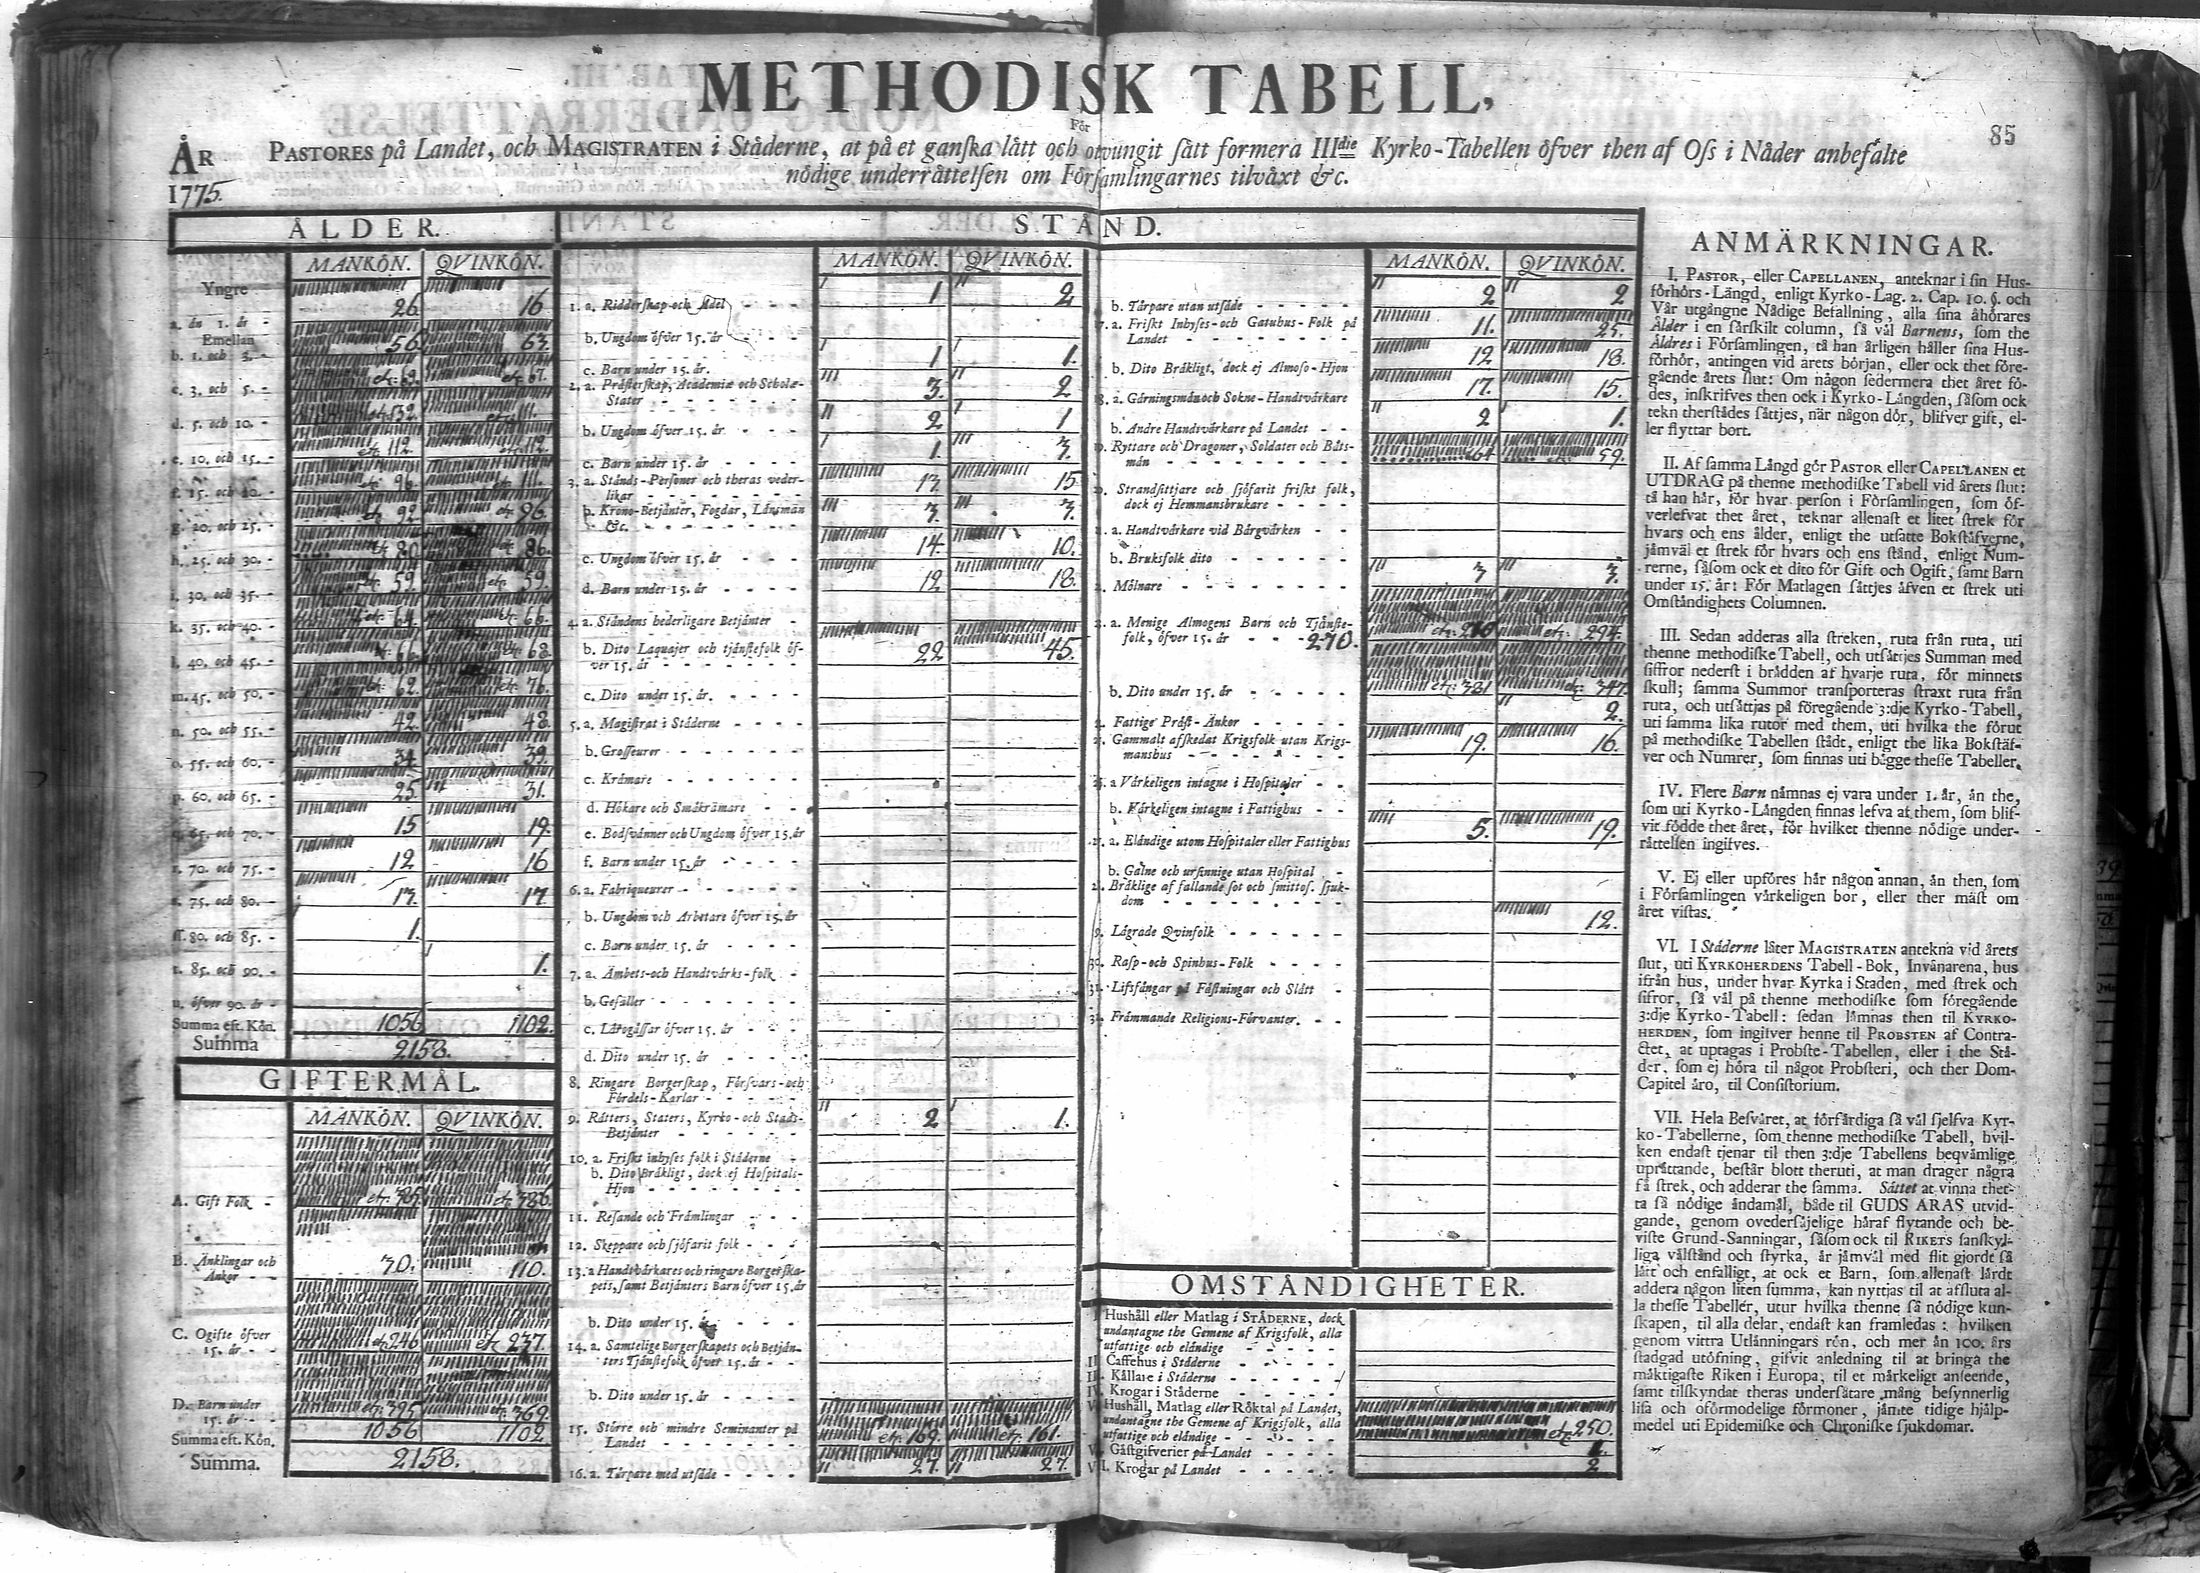 METHODISK TABELL,
För
85
ÅR
1775.
PASTORES på Landet, och MAGISTRATEN i Städerne, at på et ganska lätt och otvungit sätt formera IIIdie Kyrko-Tabellen öfver then af Oss i Nåder anbefalte
nödige underrättelsen om Församlingarnes tilväxt &c.
ÅLDER.
MANKÖN. QVINKÖN.
Yngre
a. än 1. år - 26 16
Emellan
b. 1. och 3. - 56 63.
c. 3. och 5. - etc. 67.
d. 5. och 10. - 111.
e. 10. och 15. - etc 112. etc 112.
f. 15. och 20. - etc 96. etc 111.
g. 20. och 25. - etc 92 etc 96.
h. 25. och 30. - etc 80 etc 86.
i. 30. och 35. - etc 59. etc 59.
k. 35. och 40. - etc 66.
l. 40. och 45. - etc 66. etc 68.
m. 45. och 50. - etc 62. etc 76.
n. 50. och 55. - 42. 48.
o. 55. och 60. - 34. 39.
p. 60. och 65. - 25. 31.
q. 65. och 70. - 15 19.
r. 70. och 75. - 12 16
s. 75. och 80. - 17. 17.
ss. 80. och 85. - 1.
t. 85. och 90. - 1.
u. öfver 90. år -
Summa eft. Kön. 1056 1102.
Summa 2158.
GIFTERMÅL.
MANKÖN. QVINKÖN.
A. Gift Folk - etc 385 etc 386.
B. Änklingar och
Änkor - - 30. 110.
C. Ogifte öfver
15. år - - etc 246 etc 237.
D. Barn under
15. år - - etc 395 etc 369.
Summa eft. Kön. 1056 1102
Summa. 2158.
STÅND.
MANKÖN. QVINKÖN.
1. a. Ridderskap och Adel 1 2
b. Ungdom öfver 15. år - - 1 1.
c. Barn under 15. år.
2. a. Prästerskap, Academiæ och Scholæ-
Stater - - - - - - 3. 2
b. Ungdom öfver 15. år - - 2 1
c. Barn under 15. år - - - - 1. 3.
3. a. Stånds-Personer och theras veder-
likar - - - - - - 13 15
b. Krono-Betjänter, Fogdar, Länsmän
&c. - - - - - - 3. 3.
c. Ungdom öfver 15. år - - 14. 10.
d. Barn under 15. år - - - - 12 18.
4. a. Ståndens hederligare Betjänter -
b. Dito Laquajer och tjänstefolk öf-
ver 15. år - - - - - - 22 45.
c. Dito under 15. år. - - - -
5. a. Magistrat i Städerne - - -
b. Grosseurer - - - - - -
c. Krämare - - - - - -
d. Hökare och Småkrämare - -
e. Bodsvänner och Ungdom öfver 15. år
f. Barn under 15. år - - - -
6. a. Fabriqueurer - - - - -
b. Ungdom och Arbetare öfver 15. år
c. Barn under 15. år - - - -
7. a. Ämbets- och Handtvärks-folk -
b. Gesäller - - - - - -
c. Lärogåssar öfver 15. år - -
d. Dito under 15. år - - - -
8. Ringare Borgerskap, Försvars- och
Fördels-Karlar - - - - -
9. Rätters, Staters, Kyrko- och Stads-
Betjänter - - - - - - 2 1.
10. a. Friskt inhyses folk i Städerne -
b. Dito Bräkligt, dock ej Hospitals-
Hjon - - - - - -
11. Resande och Främlingar - - -
12. Skeppare och sjöfarit folk - - -
13. a Handtvärkares och ringare Borgerska-
pets, samt Betjänters Barn öfver 15. år
b. Dito under 15. år - - -
14. a. Samtelige Borgerskapets och Betjän-
ters Tjänstefolk öfver 15. år - -
b. Dito under 15. år - - - -
15. Större och mindre Seminanter på
Landet - - - - - - etc 169. etc 161.
16. a. Torpare med utsäde - - - - 27. 27.
MANKÖN. QVINKÖN.
b. Torpare utan utsäde - - - - - 2 2
17. a. Friskt Inhyses- och Gatuhus-Folk på
Landet - - - - - - - 11. 25.
b. Dito Bräkligt, dock ej Almoso-Hjon 12 18.
18. a. Gärningsmän och Sokne-Handtvärkare 17. 15.
b. Andre Handtvärkare på Landet - - 2 1.
19. Ryttare och Dragoner, Soldater och Båts-
män - - - - - - - 59.
20. Strandsittjare och sjöfarit friskt folk,
dock ej Hemmansbrukare - - - -
21. a. Handtvärkare vid Bärgvärken - -
b. Bruksfolk dito - - - - -
22. Mölnare - - - - - - 3 3.
23. a. Menige Almogens Barn och Tjänste-
folk, öfver 15. år - - 270. etc. 294.
b. Dito under 15. år - - - - - etc. 381 etc. 347.
24. Fattige Präst-Änkor - - - - - 2.
25. Gammalt afskedat Krigsfolk utan Krigs-
manshus - - - - - - - 19. 16.
26. a Värkeligen intagne i Hospitaler - -
b. Värkeligen intagne i Fattighus - -
27. a. Eländige utom Hospitaler eller Fattighus 5. 19.
b. Galne och ursinnige utan Hospital -
28. Bräklige af fallande sot och smittos. sjuk-
dom - - - - - - -
29. Lägrade Qvinfolk - - - - - 12.
30. Rasp- och Spinhus-Folk - - - -
31. Lifsfångar på Fästningar och Slått -
32. Främmande Religions-Förvanter. - -
OMSTÄNDIGHETER.
I. Hushåll eller Matlag i STÄDERNE, dock
undantagne the Gemene af Krigsfolk, alla
utfattige och eländige - - - - -
II. Caffehus i Städerne - - - -
III. Källare i Städerne - - - - -
IV. Krogar i Städerne - - - -
V. Hushåll, Matlag eller Röktal på Landet,
undantagne the Gemene af Krigsfolk, alla
utfattige och eländige - - - - - etc 250.
VI. Gästgifverier på Landet - - - -
VII. Krogar på Landet - - - - - 2
ANMÄRKNINGAR.
I. PASTOR, eller CAPELLANEN, anteknar i sin Hus-
förhörs-Längd, enligt Kyrko-Lag. 2. Cap. 10. §. och
Vår utgångne Nådige Befallning, alla sina åhörares
Ålder i en särskilt column, så väl Barnens, som the
Äldres i Församlingen, tå han årligen håller sina Hus-
förhör, antingen vid årets början, eller ock thet före-
gående årets slut: Om någon sedermera thet året fö-
des, inskrifves then ock i Kyrko-Längden, såsom ock
tekn therstädes sättjes, när någon dör, blifver gift, el-
ler flyttar bort.
II. Af samma Längd gör PASTOR eller CAPELLANEN et
UTDRAG på thenne methodiske Tabell vid årets slut:
tå han här, för hvar person i Församlingen, som öf-
verlefvat thet året, teknar allenast et litet strek för
hvars och ens ålder, enligt the utsatte Bokstäfverne,
jämväl et strek för hvars och ens stånd, enligt Num-
rerne, såsom ock et dito för Gift och Ogift, samt Barn
under 15. år: För Matlagen sättjes äfven et strek uti
Omständighets Columnen.
III. Sedan adderas alla streken, ruta från ruta, uti
thenne methodiske Tabell, och utsättjes Summan med
siffror nederst i brädden af hvarje ruta, för minnets
skull; samma Summor transporteras straxt ruta från
ruta, och utsättjas på föregående 3:dje Kyrko-Tabell,
uti samma lika rutor med them, uti hvilka the förut
på methodiske Tabellen städt, enligt the lika Bokstäf-
ver och Numrer, som finnas uti bägge thesse Tabeller.
IV. Flere Barn nämnas ej vara under 1. år, än the,
som uti Kyrko-Längden finnas lefva af them, som blif-
vit födde thet året, för hvilket thenne nödige under-
rättelsen ingifves.
V. Ej eller upföres här någon annan, än then, som
i Församlingen värkeligen bor, eller ther mäst om
året vistas.
VI. I Städerne låter MAGISTRATEN antekna vid årets
slut, uti KYRKOHERDENS Tabell-Bok, Invånarena, hus
ifrån hus, under hvar Kyrka i Staden, med strek och
sifror, så väl på thenne methodiske som föregående
3:dje Kyrko-Tabell: sedan lämnas then til KYRKO-
HERDEN, som ingifver henne til PROBSTEN af Contra-
ctet, at uptagas i Probste-Tabellen, eller i the Stä-
der, som ej höra til något Probsteri, och ther Dom-
Capitel äro, til Consistorium.
VII. Hela Besväret, at förfärdiga så väl sjelfva Kyr-
ko-Tabellerne, som thenne methodiske Tabell, hvil-
ken endast tjenar til then 3:dje Tabellens beqvämlige
uprättande, består blott theruti, at man drager några
få strek, och adderar the samma. Sättet at vinna thet-
ta så nödige ändamål, både til GUDS ÄRAS utvid-
gande, genom ovedersäjelige häraf flytande och be-
viste Grund-Sanningar, såsom ock til RIKETS sanskyl-
liga välstånd och styrka, är jämväl med flit gjordt så
lätt och enfalligt, at ock et Barn, som allenast lärdt
addera någon liten summa, kan nyttjas til at afsluta al-
la thesse Tabeller, utur hvilka thenne så nödige kun-
skapen, til alla delar, endast kan framledas: hvilken
genom vittra Utlänningars rön, och mer än 100. års
stadgad utöfning, gifvit anledning til at bringa the
mäktigaste Riken i Europa, til et märkeligt anseende,
samt tilskyndat theras undersåtare mång besynnerlig
lisa och oförmodelige förmoner, jämte tidige hjälp-
medel uti Epidemiske och Chroniske sjukdomar.